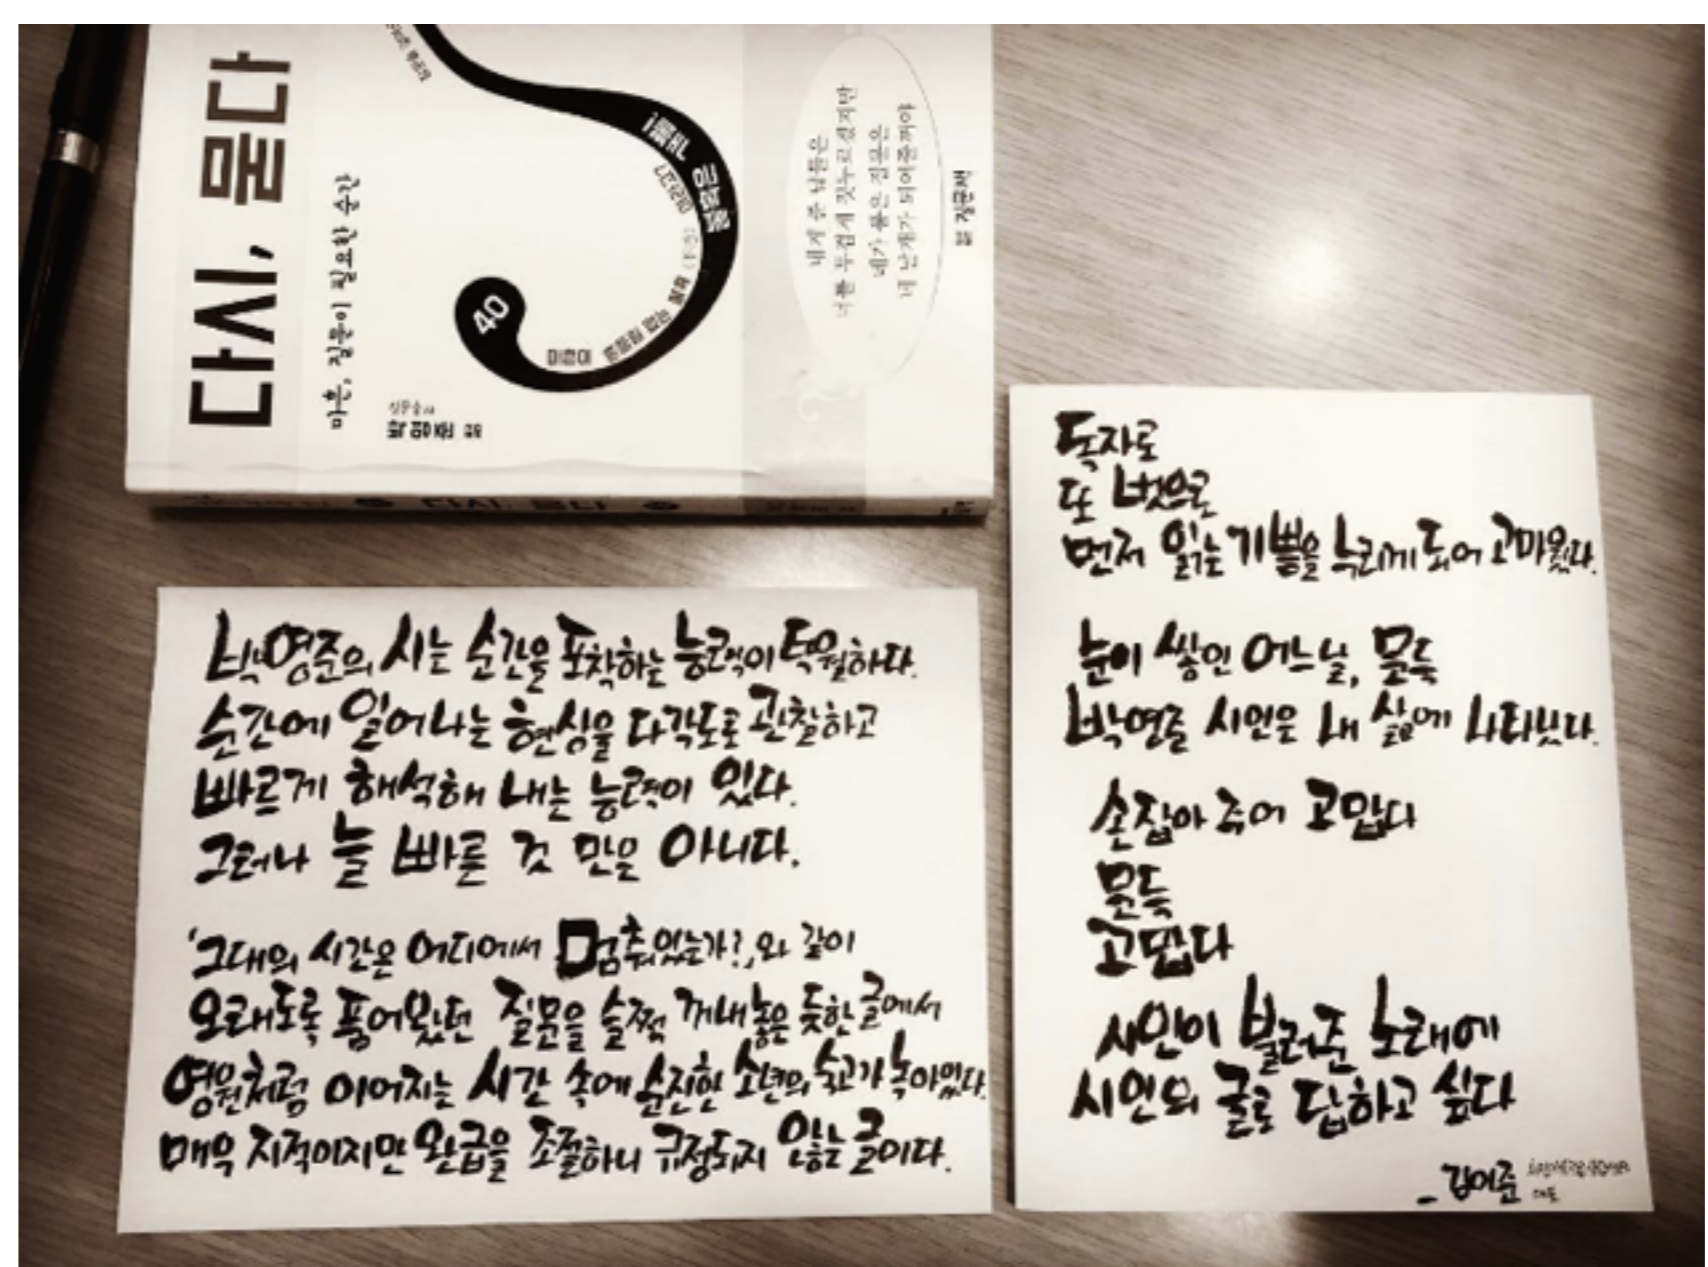 다시, 묻다
마흔, 질문이 필요한 순간
40
네게 준 답들은
너를 무겁게 짓누르겠지만
네가 품은 질문은
네 날개가 되어줄꺼야
박영준
다시, 묻다
박영준의 시는 순간을 포착하는 능력이 탁월하다.
순간에 일어나는 현상을 다각도로 관찰하고
빠르게 해석해 내는 능력이 있다.
그러나 늘 빠른 것 만은 아니다.
'그대의 시간은 어디에서 멈춰있는가?'와 같이
오래도록 품어왔던 질문을 슬쩍 꺼내놓은 듯한 글에서
영원처럼 이어지는 시간 속에 순진한 소년의 숙고가 녹아있다.
매우 지적이지만 완급을 조절하니 규정되지 않는 글이다.
독자로
또 벗으로
먼저 읽는 기쁨을 누리게 되어 고마웠다.
눈이 쌓인 어느날, 문득
박영준 시인은 내 삶에 나타났다.
손잡아 주어 고맙다
문득
고맙다
시인이 불러준 노래에
시인의 글로 답하고 싶다
대표